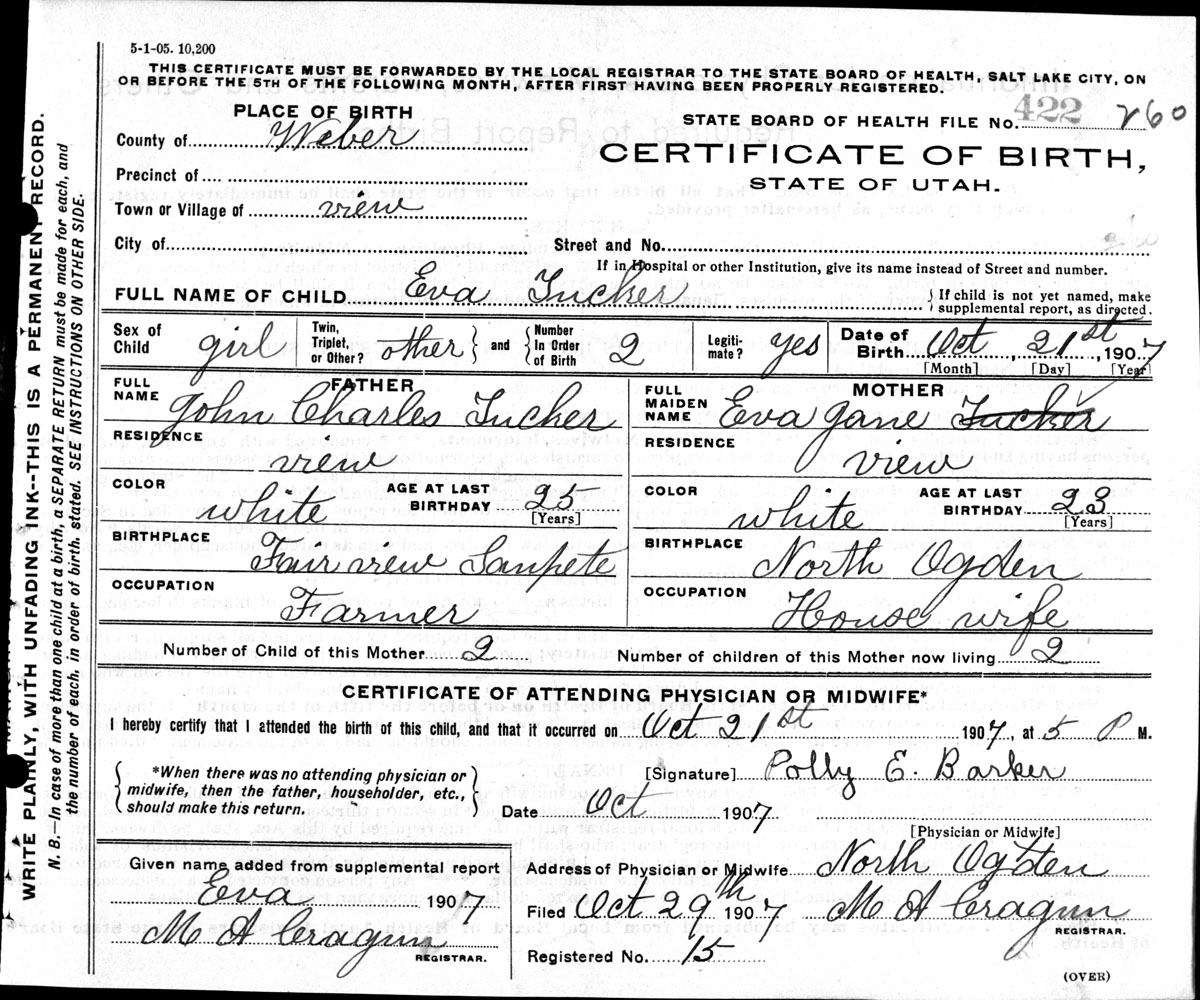 5-1-05. 10,200
THIS CERTIFICATE MUST BE FORWARDED BY THE LOCAL REGISTRAR TO THE STATE BOARD OF HEALTH, SALT LAKE CITY, ON
OR BEFORE THE 5TH OF THE FOLLOWING MONTH, AFTER FIRST HAVING BEEN PROPERLY REGISTERED.
PLACE OF BIRTH
STATE BOARD OF HEALTH FILE NO. 422 260
County of Weber
CERTIFICATE OF BIRTH,
STATE OF UTAH.
Precinct of
Town or Village of view
City of Street and No.
If in Hospital or other Institution, give its name instead of Street and number.
FULL NAME OF CHILD Eva Tucker { If child is not yet named, make supplemental report, as directed.
Sex of Child girl Twin, Triplet, or Other? other } and { Number In Order of Birth 2 Legiti- mate? yes Date of Birth Oct, 21st, 1907
[Month] [Day] [Year]
FATHER MOTHER
FULL NAME John Charles Tucker FULL MAIDEN NAME Eva Jane Tucker
RESIDENCE view RESIDENCE view
COLOR white AGE AT LAST BIRTHDAY 25 [Years] COLOR white AGE AT LAST BIRTHDAY 23 [Years]
BIRTHPLACE Fairview Sanpete BIRTHPLACE North Ogden
OCCUPATION Farmer OCCUPATION House wife
Number of Child of this Mother 2 Number of children of this Mother now living 2
CERTIFICATE OF ATTENDING PHYSICIAN OR MIDWIFE*
I hereby certify that I attended the birth of this child, and that it occurred on Oct 21st 1907, at 5 P M.
{ *When there was no attending physician or midwife, then the father, householder, etc., should make this return. }
[Signature] Polly E. Barker
Date Oct 1907
[Physician or Midwife]
Given name added from supplemental report
Eva 1907
M A Cragun
REGISTRAR.
Address of Physician or Midwife North Ogden
Filed Oct 29th 1907 M A Cragun
REGISTRAR.
Registered No. 15
(OVER)
WRITE PLAINLY, WITH UNFADING INK--THIS IS A PERMANENT RECORD.
N. B.—In case of more than one child at a birth, a SEPARATE RETURN must be made for each, and
the number of each, in order of birth, stated. SEE INSTRUCTIONS ON OTHER SIDE.